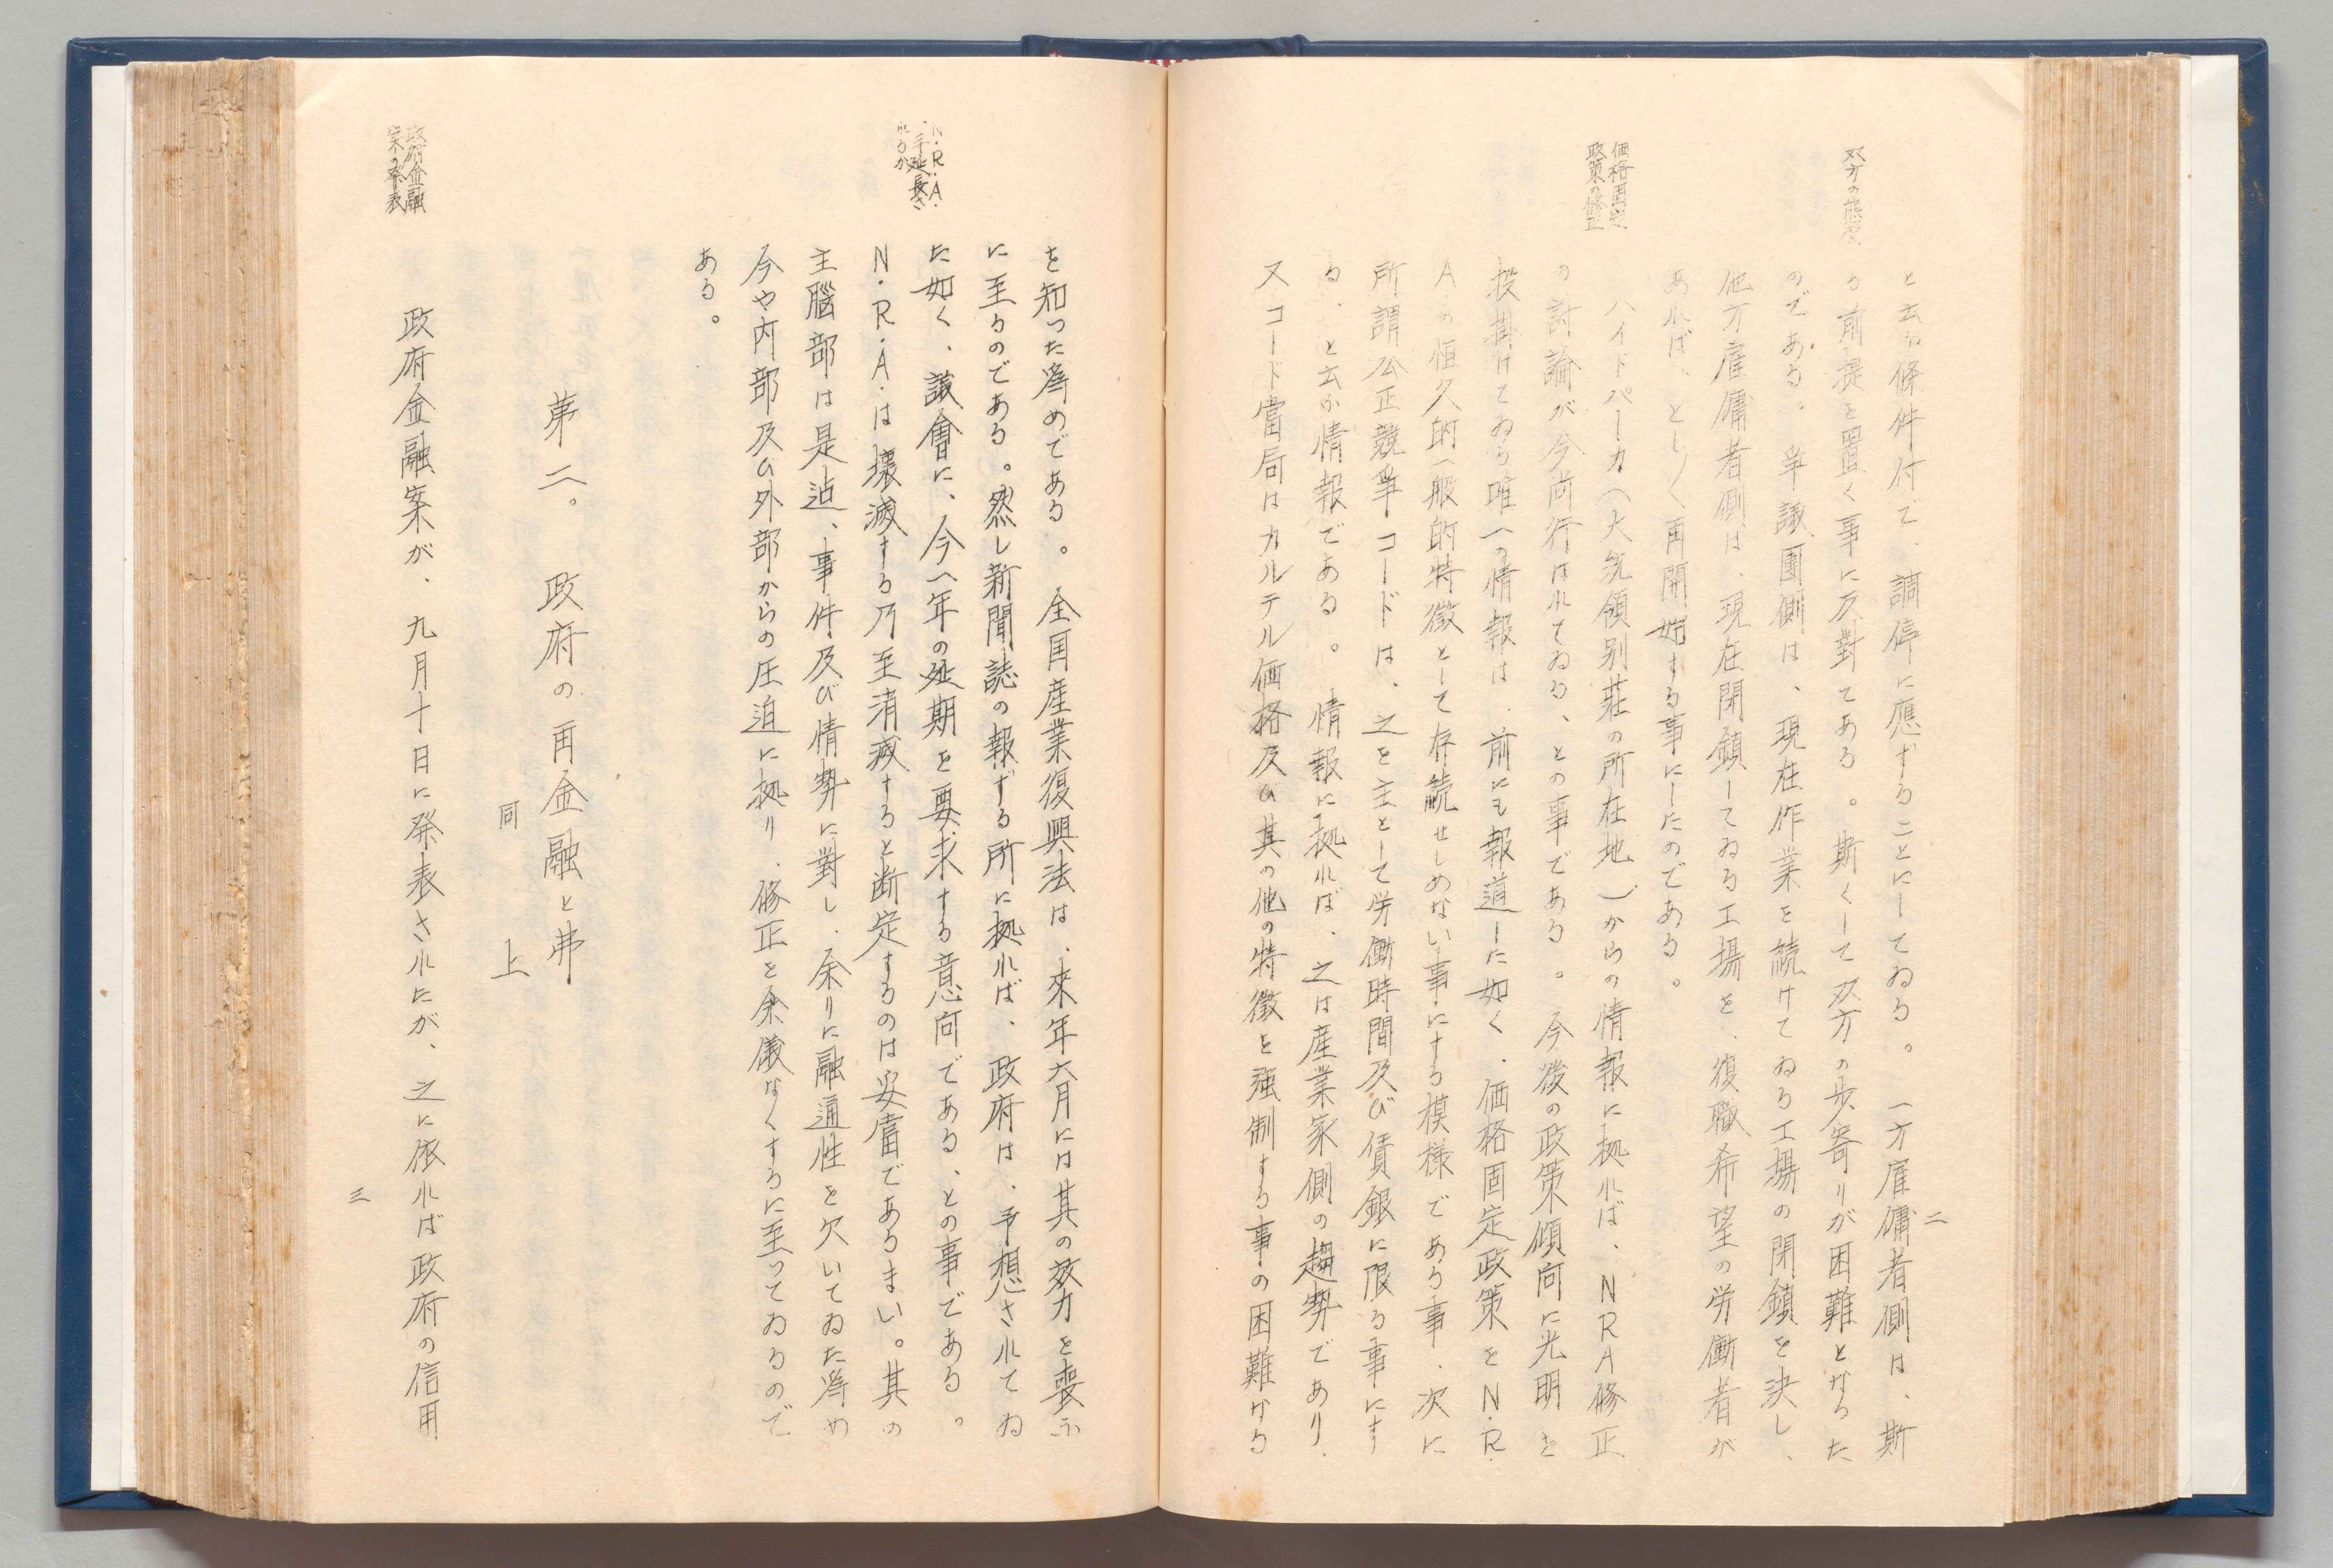 双方の態度
と云ふ條件付で、調停に應ずることにしてゐる。一方雇傭者側は、斯
る前提を置く事に反對てある。斯くして双方の歩寄りが困難となつた
のである。爭議團側は、現在作業を続けてゐる工場の閉鎖を決し、
他方雇傭者側は、現在閉鎖してゐる工場を、復職希望の労働者が
あれば、どし〱再開始する事にしたのである。
価格固定
政策の修正
ハイドパーカ(大統領別莊の所在地)からの情報に拠れば、NRA修正
の討論が今尚行はれてゐる、との事である。今後の政策傾向に光明を
投掛けてゐる唯一の情報は、前にも報道した如く、価格固定政策をN.R.
Aの恒久的一般的特徴として存続せしめない事にする模様である事、次に
所謂公正競爭コードは、之を主として労働時間及び賃銀に限る事にす
る、と云ふ情報である。情報に拠れば、之は産業家側の趨勢であり、
又コード當局はカルテル価格及び其の他の特徴を強制する事の困難なる
二
を知つた為めである。全国産業復興法は、來年六月には其の效力を喪ふ
に至るのである。然し新聞誌の報ずる所に拠れば、政府は、予想されてゐ
た如く、議會に、今一年の延期を要求する意向である、との事である。
N.R.A.
一年延長さ
れるか
N.R.A.は壊滅する乃至消滅すると断定するのは妥當であるまい。其の
主腦部は是迄、事件及び情勢に對し、余りに融通性を欠いてゐた為め
今や内部及び外部からの圧迫に拠り、修正を余儀なくするに至つてゐるので
ある。
第二。 政府の再金融と弗
同 上
政府金融
案の発表
政府金融案が、九月十日に発表されたが、之に依れば政府の信用
三